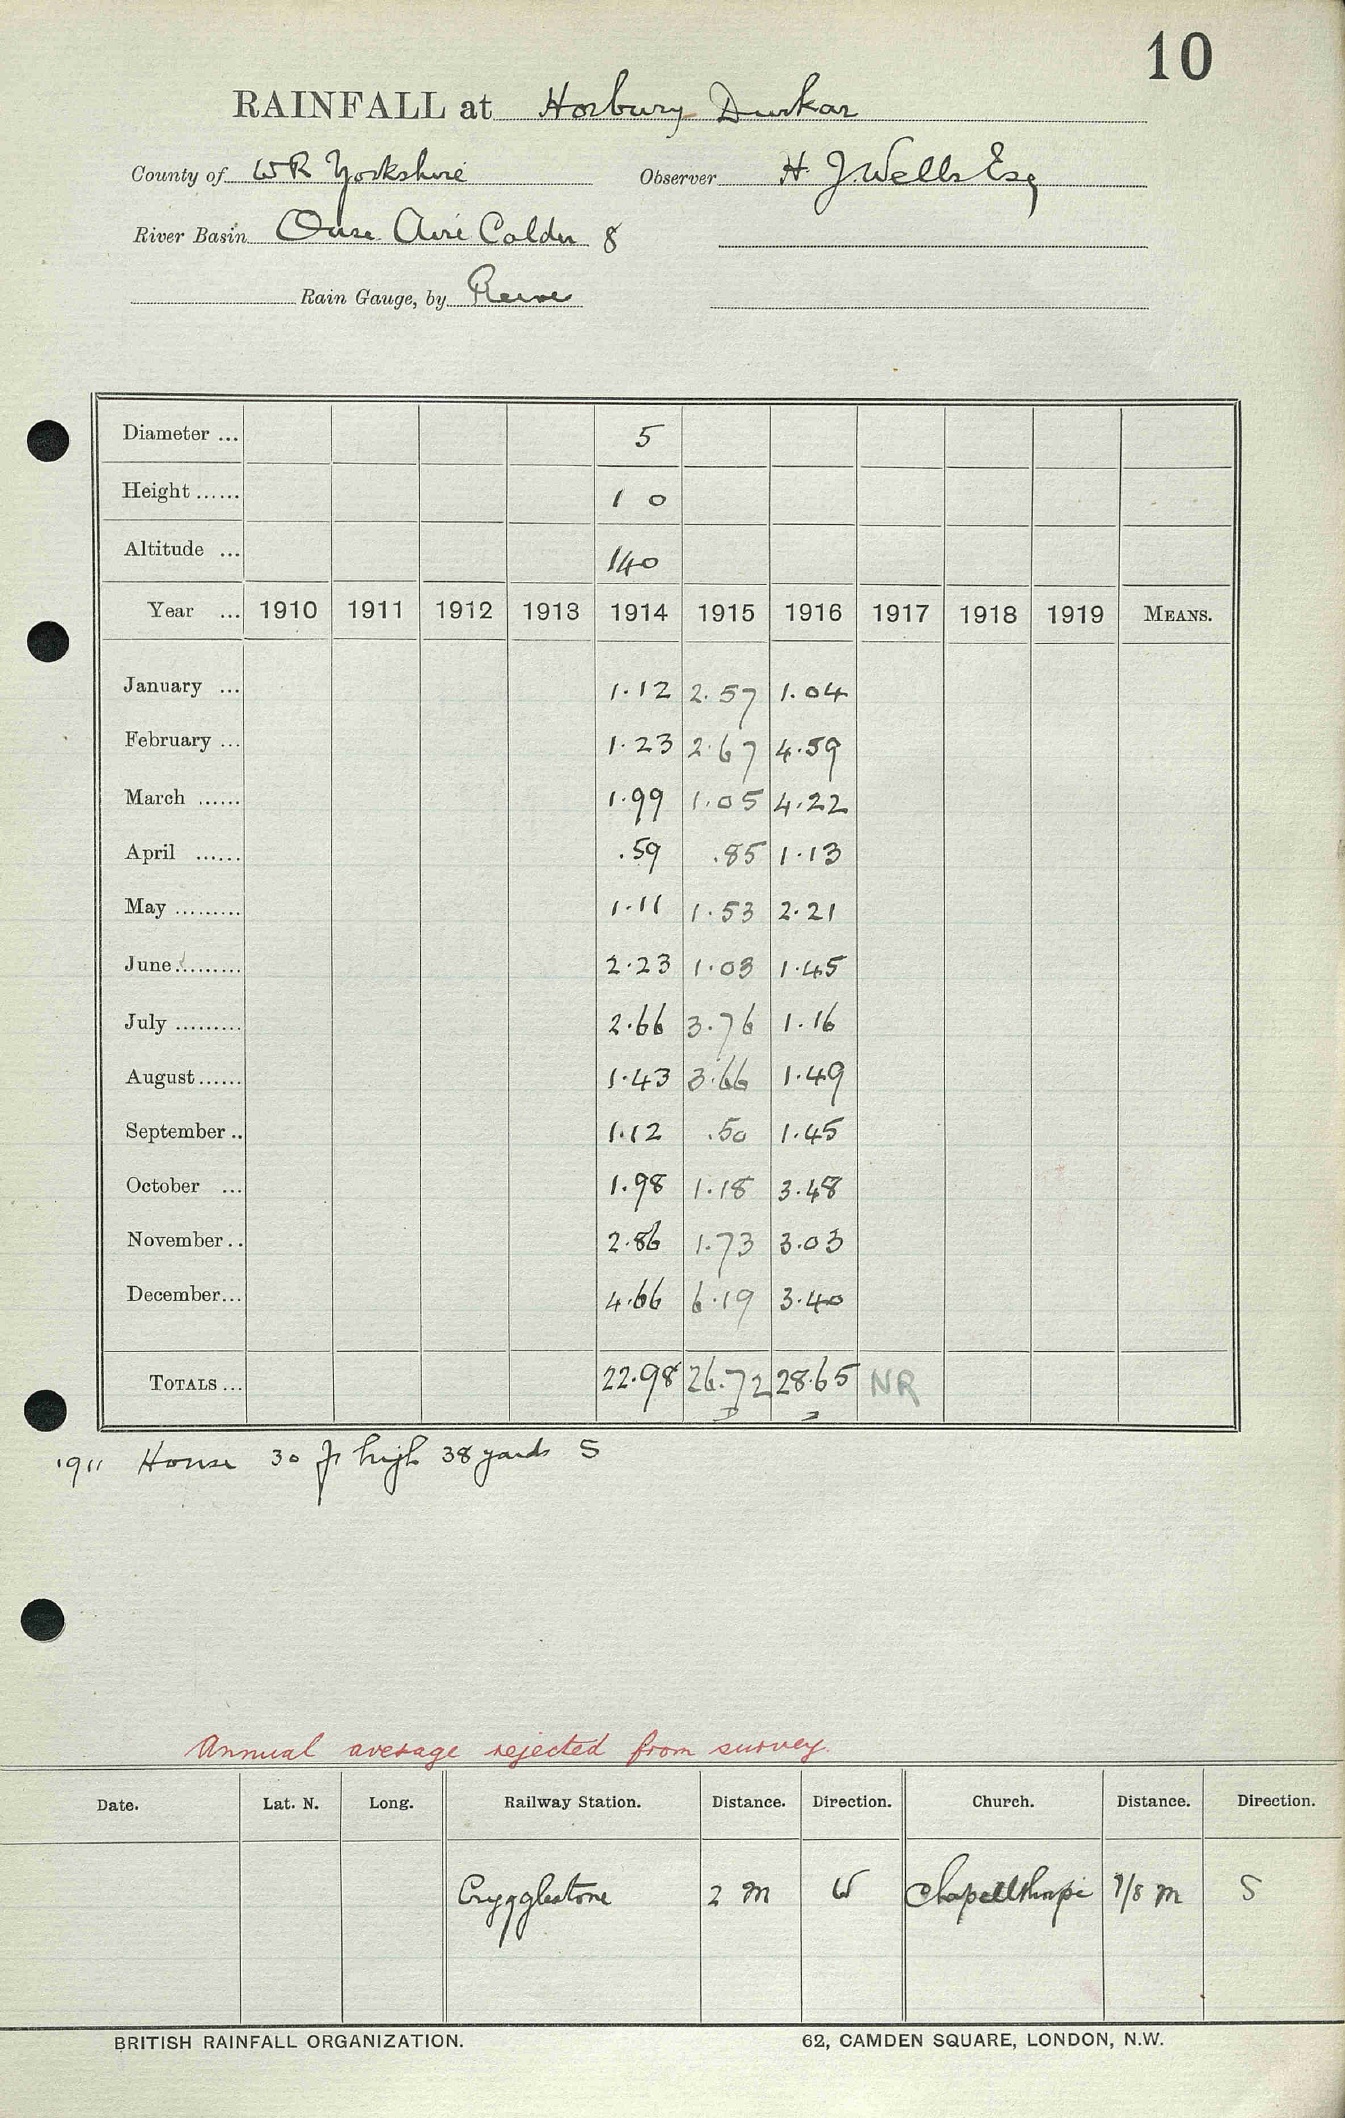 10
RAINFALL at Horbury Durkar
County of WR Yorkshire Observer H. J. Wells Esq
River Basin Ouse Aire Calder 8
Rain Gauge, by
Diameter ... 5
Height ...... 1 0
Altitude ... 140
Year ... 1910 1911 1912 1913 1914 1915 1916 1917 1918 1919 MEANS.
January ... 1.12 2.57 1.04
February ... 1.23 2.67 4.59
March ...... 1.99 1.05 4.22
April ...... .59 .85 1.13
May ......... 1.11 1.53 2.21
June ......... 2.23 1.03 1.45
July ......... 2.66 3.76 1.16
August ...... 1.43 3.66 1.49
September .. 1.12 .50 1.45
October ... 1.98 1.18 3.48
November .. 2.86 1.73 3.03
December ... 4.66 6.19 3.40
TOTALS ... 22.98 26.72 28.65 NR
1911 House 30 ft high 38 yards S
Annual average rejected from survey.
Date. Lat. N. Long. Railway Station. Distance. Direction. Church. Distance. Direction.
Crygglestone 2 m W Chapelthorpe 7/8 m S
BRITISH RAINFALL ORGANIZATION. 62, CAMDEN SQUARE, LONDON, N.W.